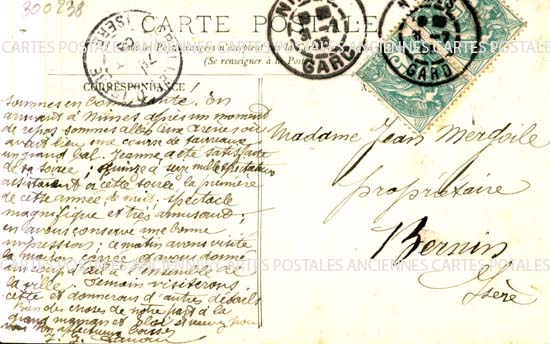 300238
CARTE POSTALE
Tous les Pays étrangers n'acceptent pas la
(Se renseigner à la Poste)
CORRESPONDANCE
GARD
GARD
ISERE
sommes en bonne santé. En
arrivant à Nimes après un moment
de repos sommes allés aux arènes où
avait lieu une course de taureaux
un grand bal. Jeanne a été satisfaite
de sa soirée; quinze à seize mille spectateurs
assistaient à cette soirée, la première
de cette année de nuit. spectacle
magnifique et très amusant;
en avons conservé une bonne
impression; ce matin avons visité
la maison carrée d'avons donné
un coup d'œil à l'ensemble de
la ville. Demain visiterons
cette et donnerons d'autres détails
Bien des choses de notre part à la
grand maman et Eloi et recevez pour
vous nos affectueux baisers
Madame Jean Merfoile
propriétaire
Bernin
Isère
CARTES POSTALES ANCIENNES CARTES POSTALES